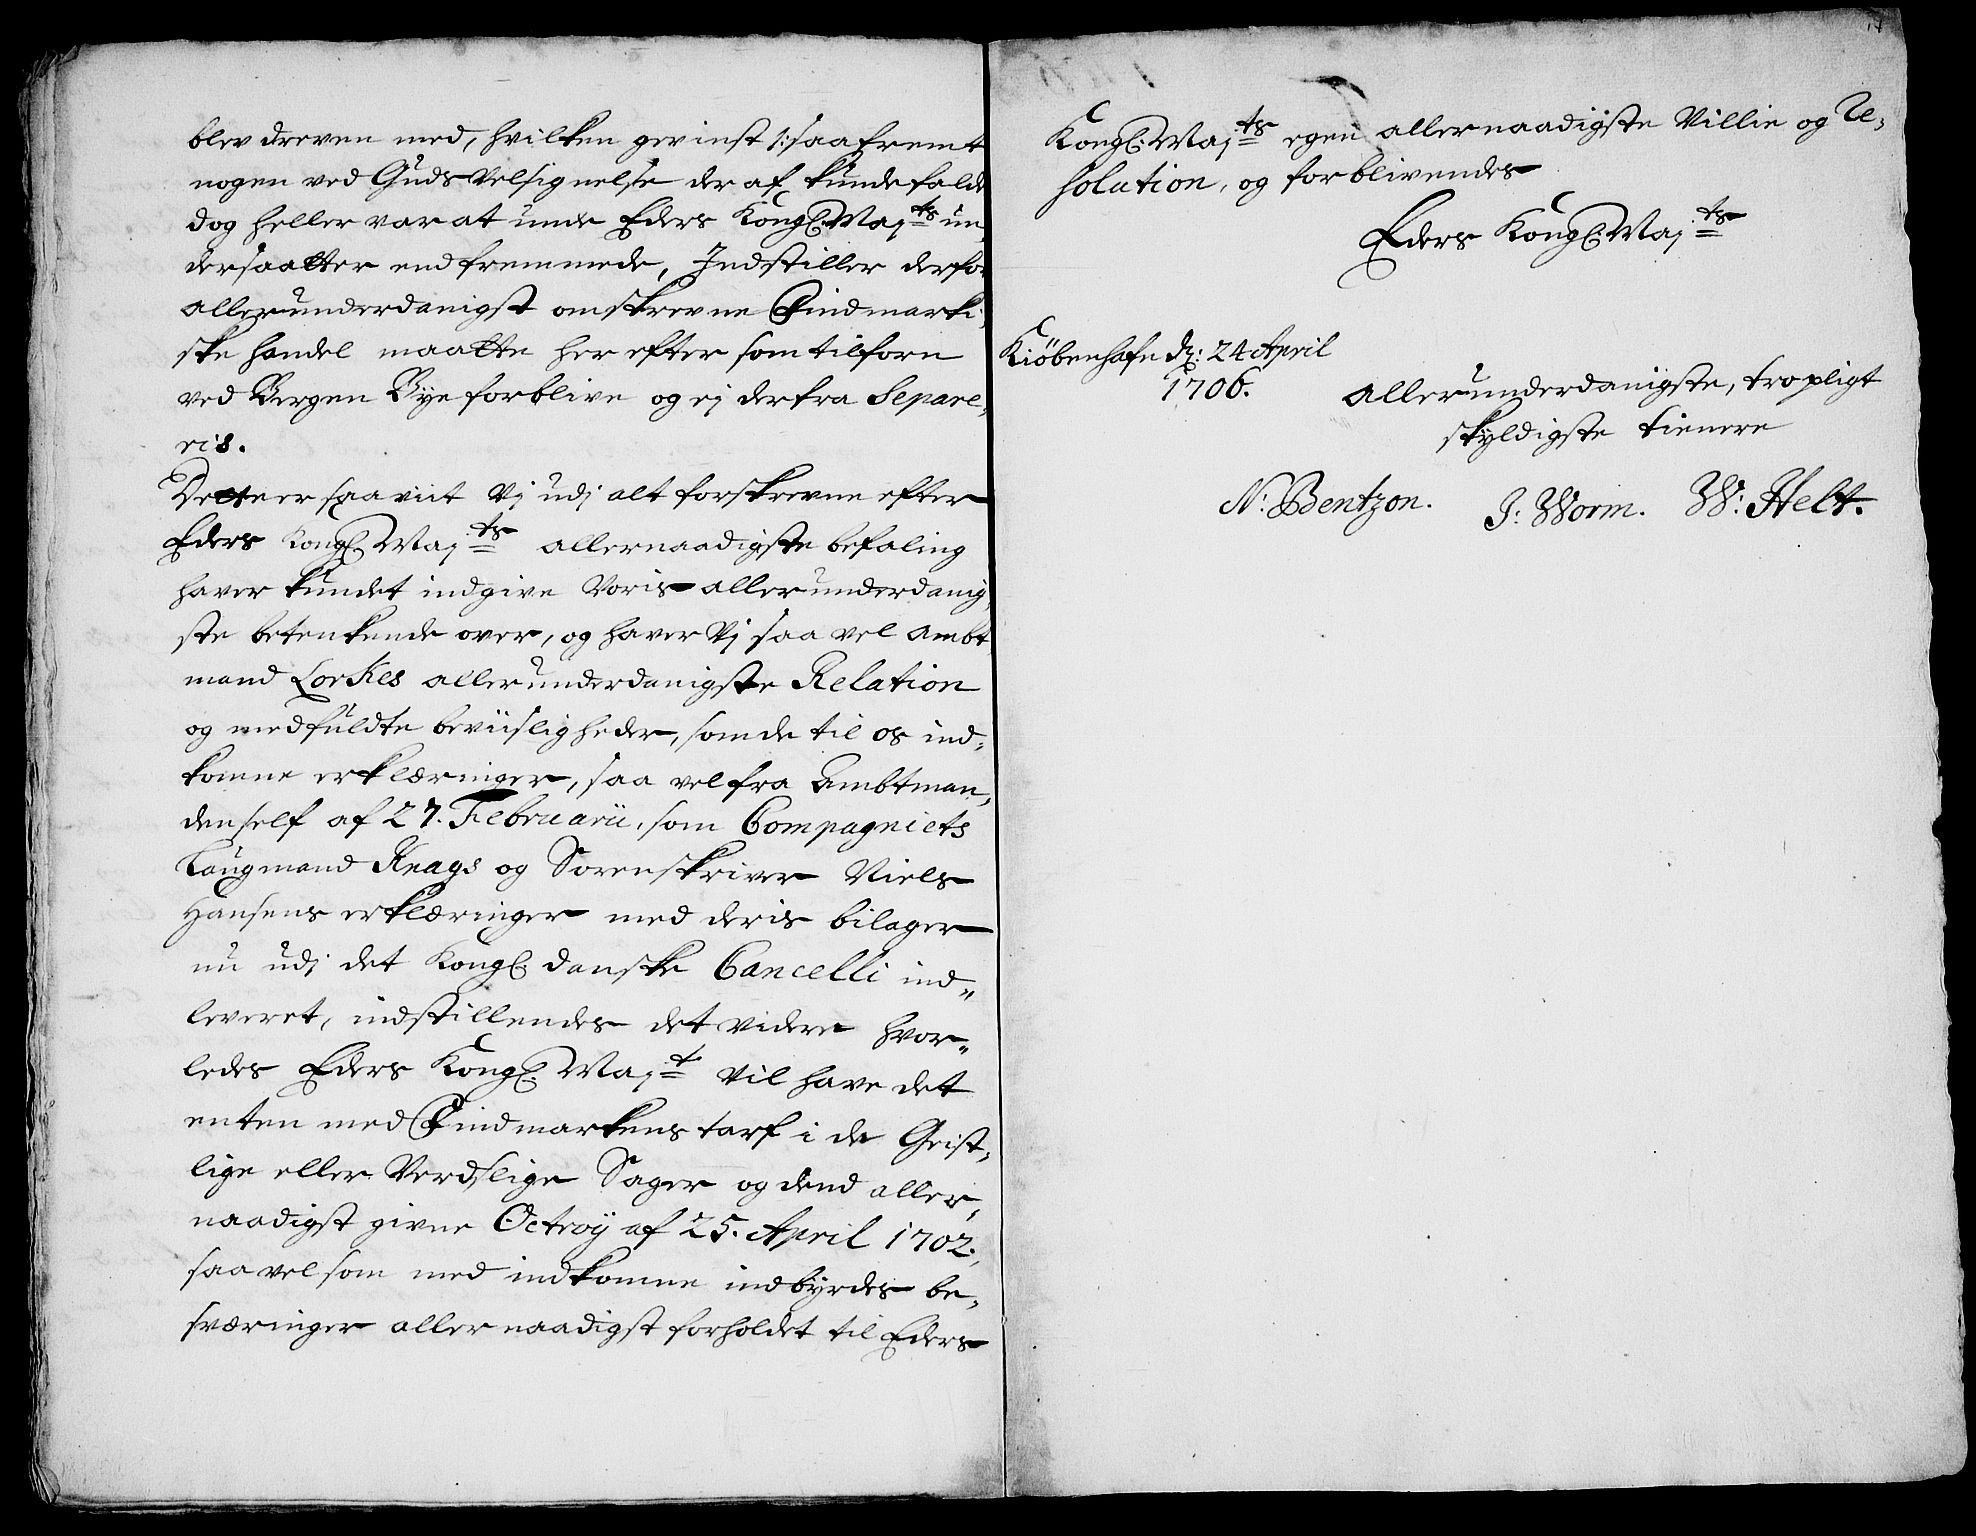 blev dreven med, hvilken gevinst /: saafremt
nogen ved Guds velsignelse der af kunde falde
dog heller var at unde Eders Kongl. Maj:ts un,
dersaatter end fremmede, Indstiller derfor
allerunderdanigst omskrevne Findmarki,
ske handel maatte her efter som tilforn
ved Bergen Bye forblive og ej derfra Separe,
ris.
Dette er saaviit vj udj alt forskrevne efter
Eders Kongl. Maj:ts allernaadigste befaling
haver kundet indgive voris allerunderdanig,
ste betenkende over, og haver vj saa vel ambt
mand Lorkes allerunderdanigste Relation
og medfuldte beviisligheder, som de til os ind,
komne erklæringer, saa vel fra Ambtman,
den self af 27. Februarii, som Compagniets
Laugmand Knags og Sorenskriver Niels
Hansens erklæringer med deris bilager
nu udj det Kongl. danske Cancelli ind„
leveret, indstillendes det videre hvor„
ledes Eders Kongl. Maj:t vil have det
enten med Findmarkens tarf i de Geist,
lige eller Verdslige Sager og dend aller,
naadigst givne Octroÿ af 25. April 1702.,
saa vel som med indkomne indbyrdes be,
sværinger allernaadigst forholdet til Eders
Kongl. Maj:ts egen allernaadigste Villie og Re,
solution, og forblivendes
Eders Kongl. Maj:ts
Kiöbenhafn d: 24 April
1706.
allerunderdanigste, tropligt
skyldigste tienere
N: Bentzon. J: Worm. W: Helt.